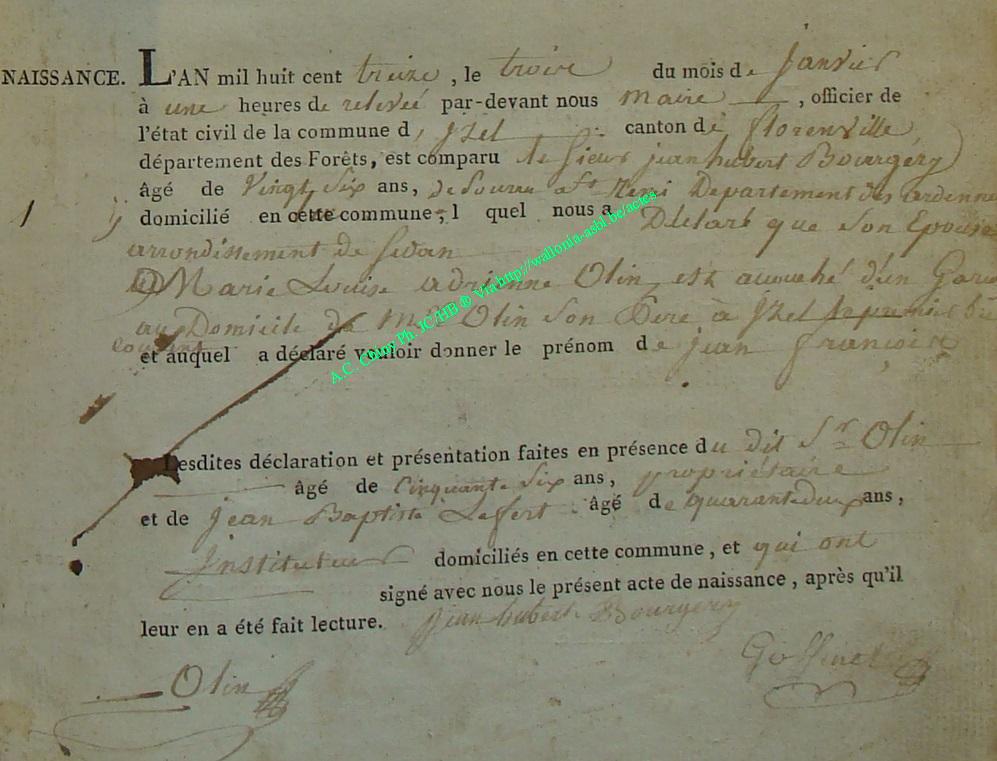 NAISSANCE. L'AN mil huit cent treize, le trois du mois de Janvier
à une heures de relevée par-devant nous maire, officier de
l'état civil de la commune d, Izel canton de florenville
département des Forêts, est comparu le sieur jean hubert Bourgery
âgé de Vingt Six ans, Remi Departement des ardenne
1 domicilié en cette commune, l quel nous a Déclaré que Son Epouse
arrondissement de Sedan
Marie Louise adrienne Olin est accouché d'un Garc
au Domicile de Mr Olin Son Père à Izel le premier du
courant
et auquel a déclaré vouloir donner le prénom de jean françois
Lesdites déclaration et présentation faites en présence du dit Sr Olin
âgé de Cinquante Six ans, propriétaire
et de Jean Baptiste Lefort âgé de quarantedeux ans,
Instituteur domiciliés en cette commune, et qui ont
signé avec nous le présent acte de naissance, après qu'il
leur en a été fait lecture. Jean hubert Bourgery
Olin Goffinet
A.C. Chiny Ph. JC/HB ® Via http://wallonia-asbl.be/actes